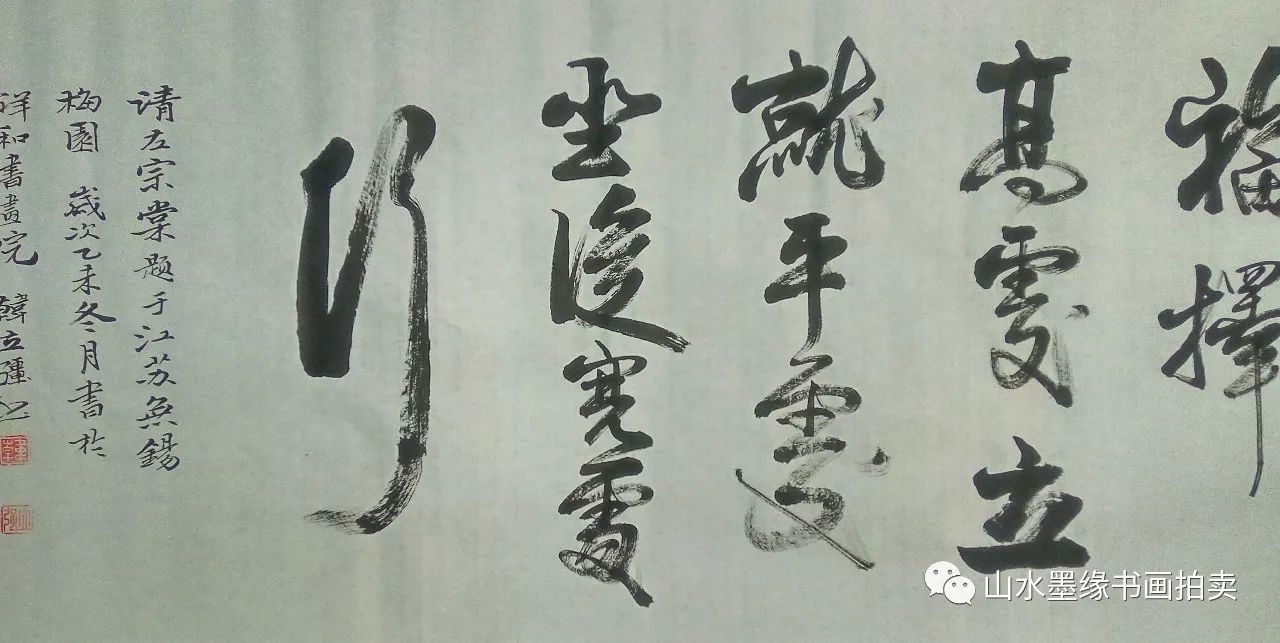 福擇
高處立
就平處
坐從寬處
行
请左宗棠题于江苏無錫
梅園 歲次乙未冬月書於
祥和書畫院 韓立強
山水墨缘书画拍卖